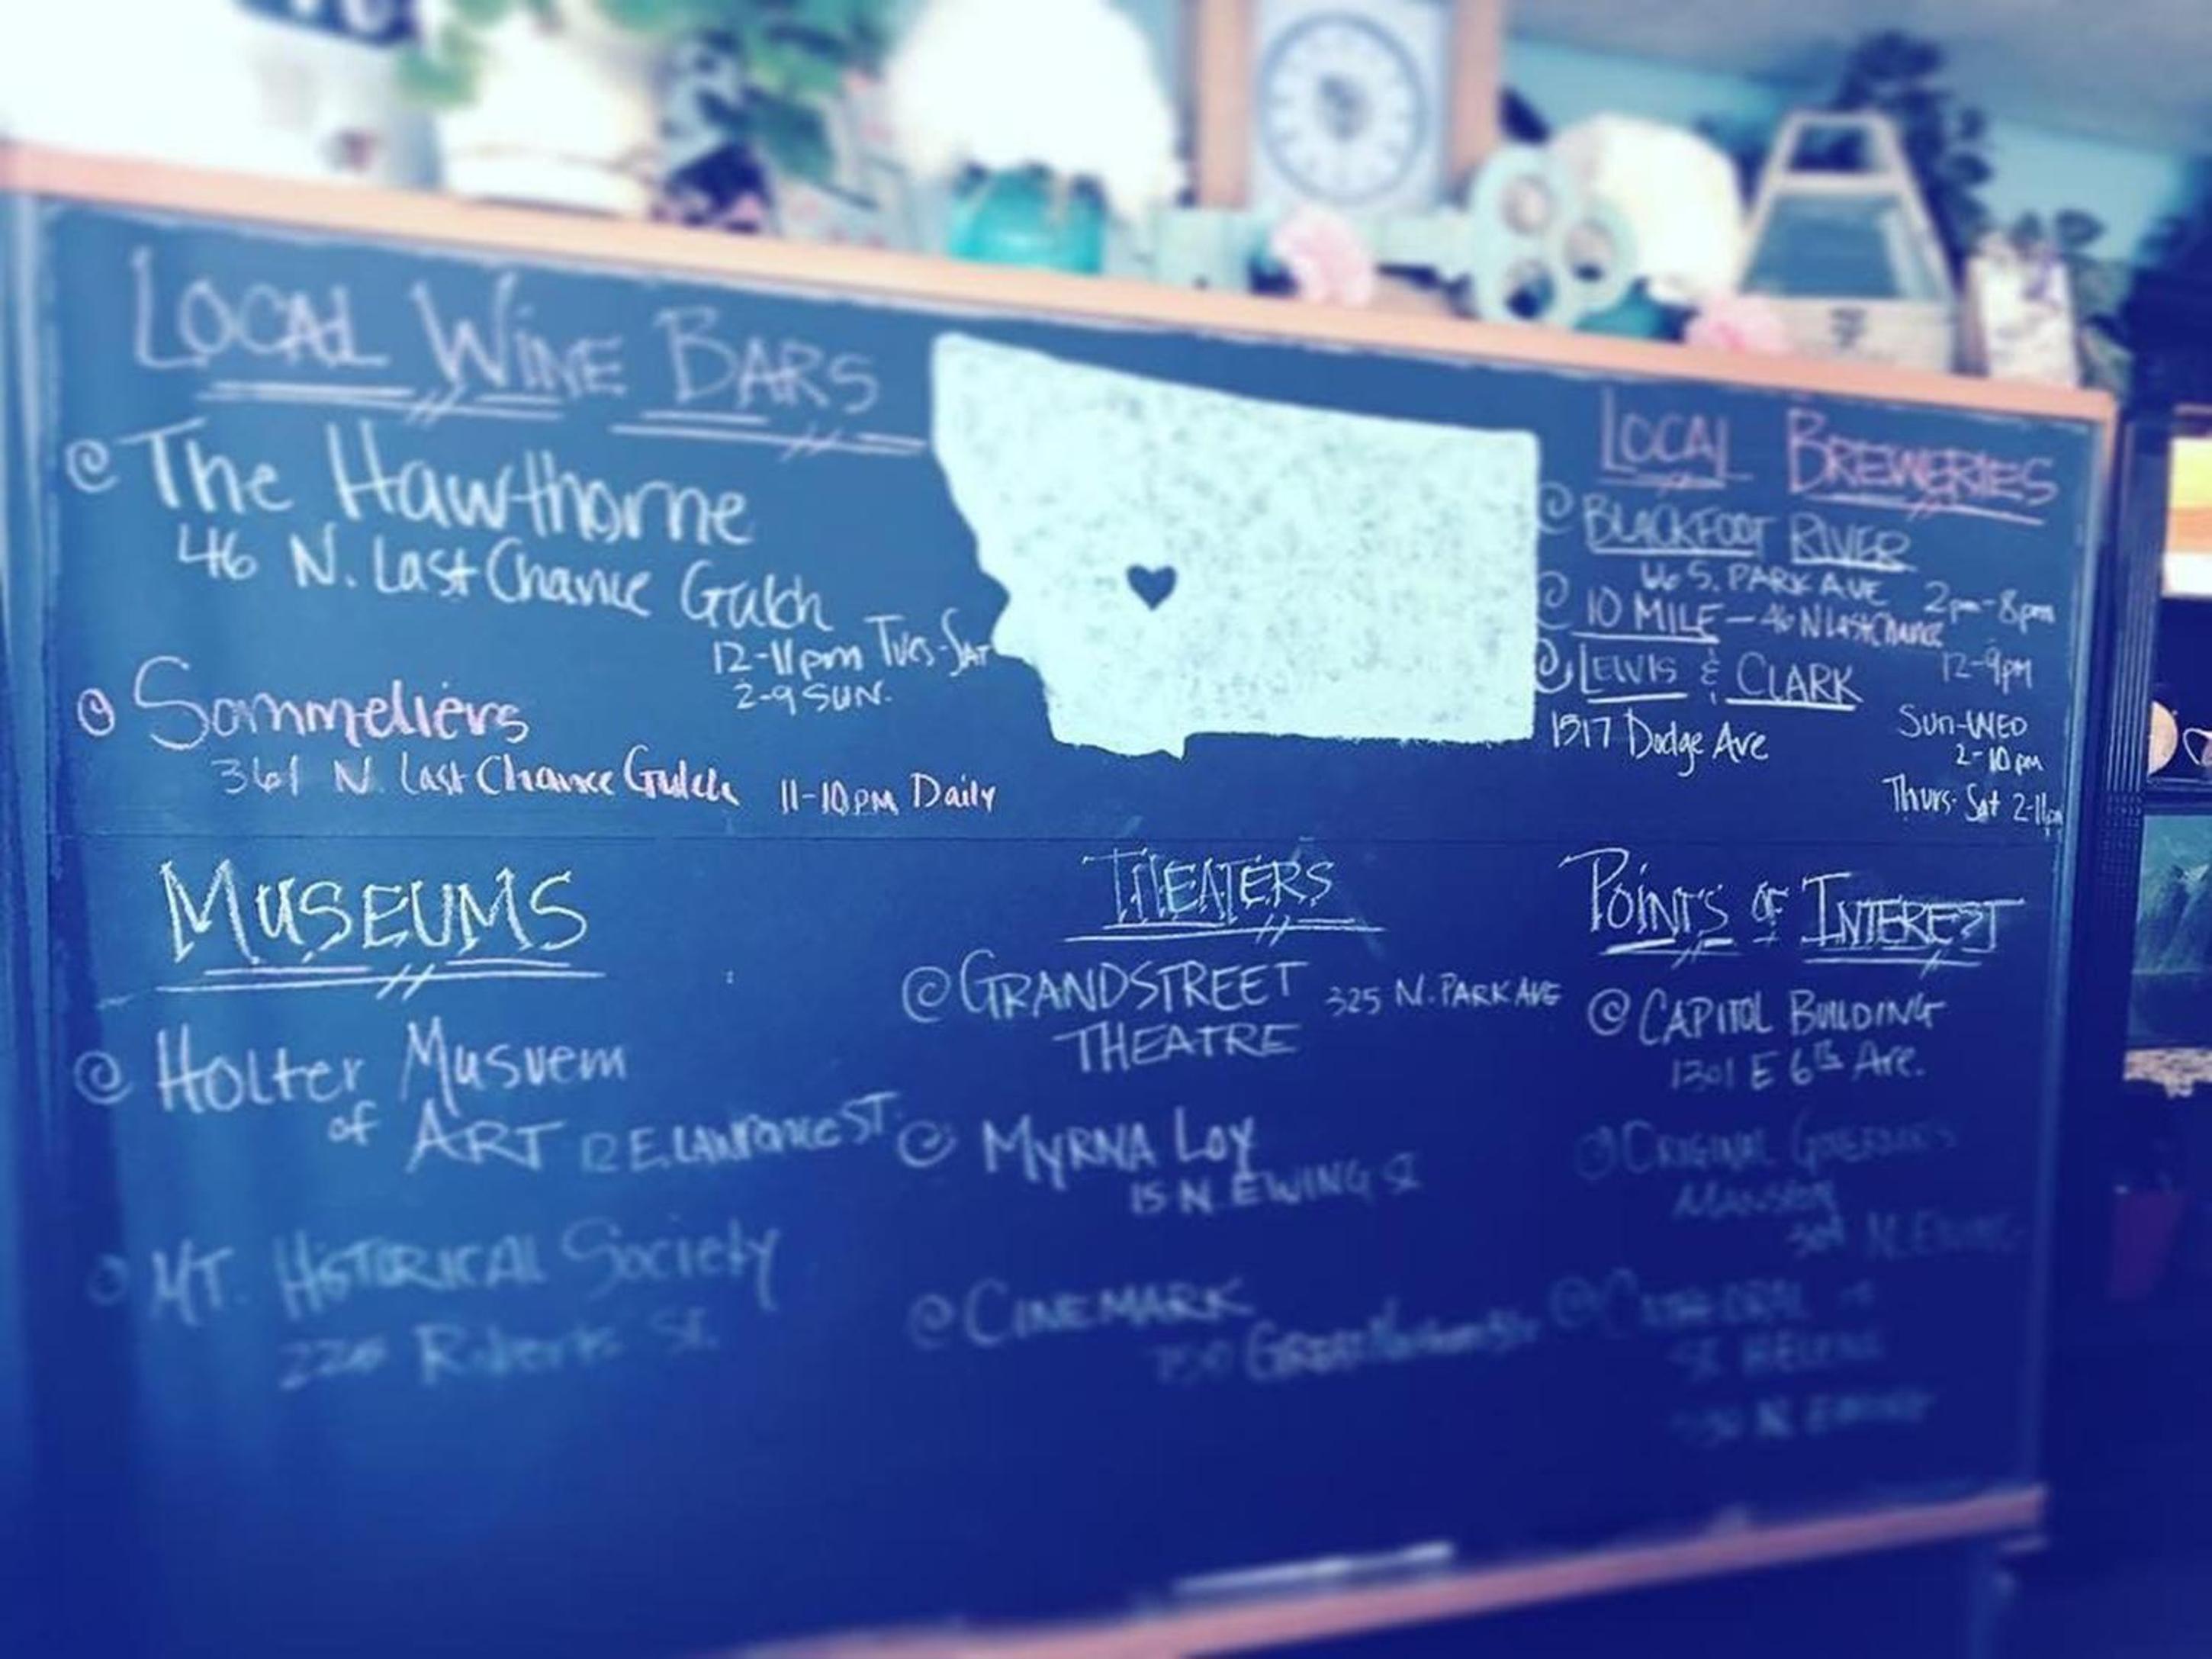 LOCAL WINE BARS
The Hawthorne
46 N. Last Chance Gulch
12-11pm Tues-Sat
2-9 SUN.
Sommeliers
361 N. Last Chance Gulch 11-10pm Daily
LOCAL BREWERIES
BLACKFOOT RIVER
66 S. PARK AVE 2pm-8pm
10 MILE - 46 N Last Chance
12-9pm
LEWIS & CLARK
1517 Dodge Ave
Sun-WED
2-10pm
Thurs-Sat 2-11pm
MUSEUMS
Holter Museum
of ART 12 E. LAWRENCE ST.
MT. HISTORICAL Society
Roberts St.
THEATERS
GRANDSTREET 325 N. PARK AVE
THEATRE
MYRNA LOY
15 N. EWING St
CINEMARK
GREAT Northern
POINTS OF INTEREST
CAPITOL BUILDING
1301 E 6th Ave.
ORIGINAL GOVERNORS
MANSION
304 N. EWING
CATHEDRAL of
St. HELENA
N. EWING